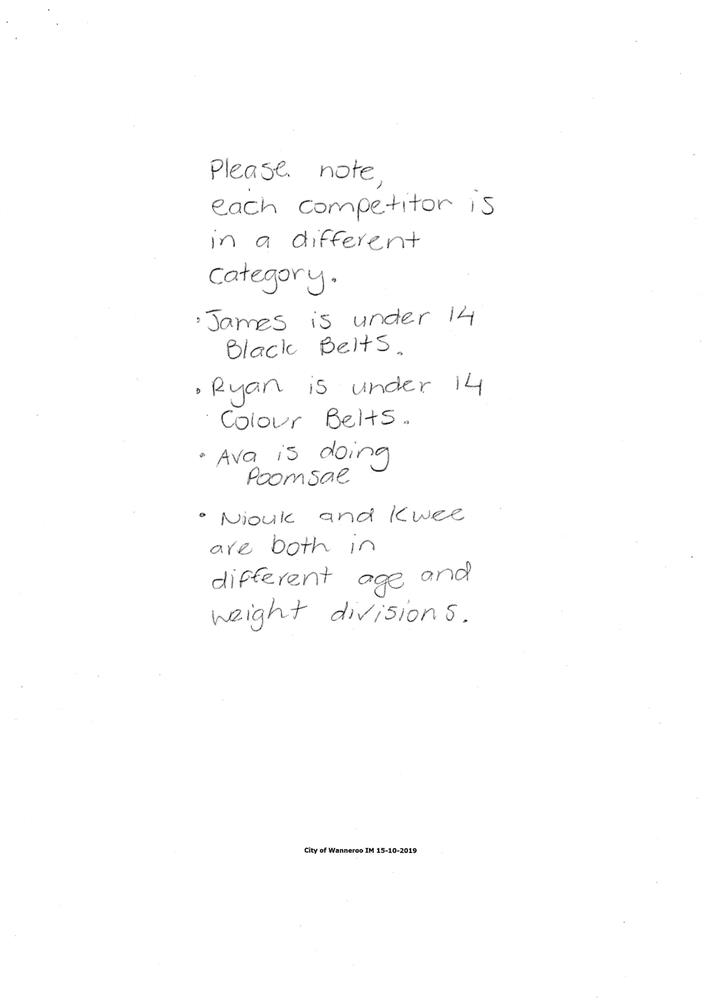 Please note,
each competitor is
in a different
category.
• James is under 14
Black Belts.
• Ryan is under 14
Colour Belts.
• Ava is doing
Poomsae
• Niouk and Kwee
are both in
different age and
weight divisions.
City of Wanneroo IM 15-10-2019